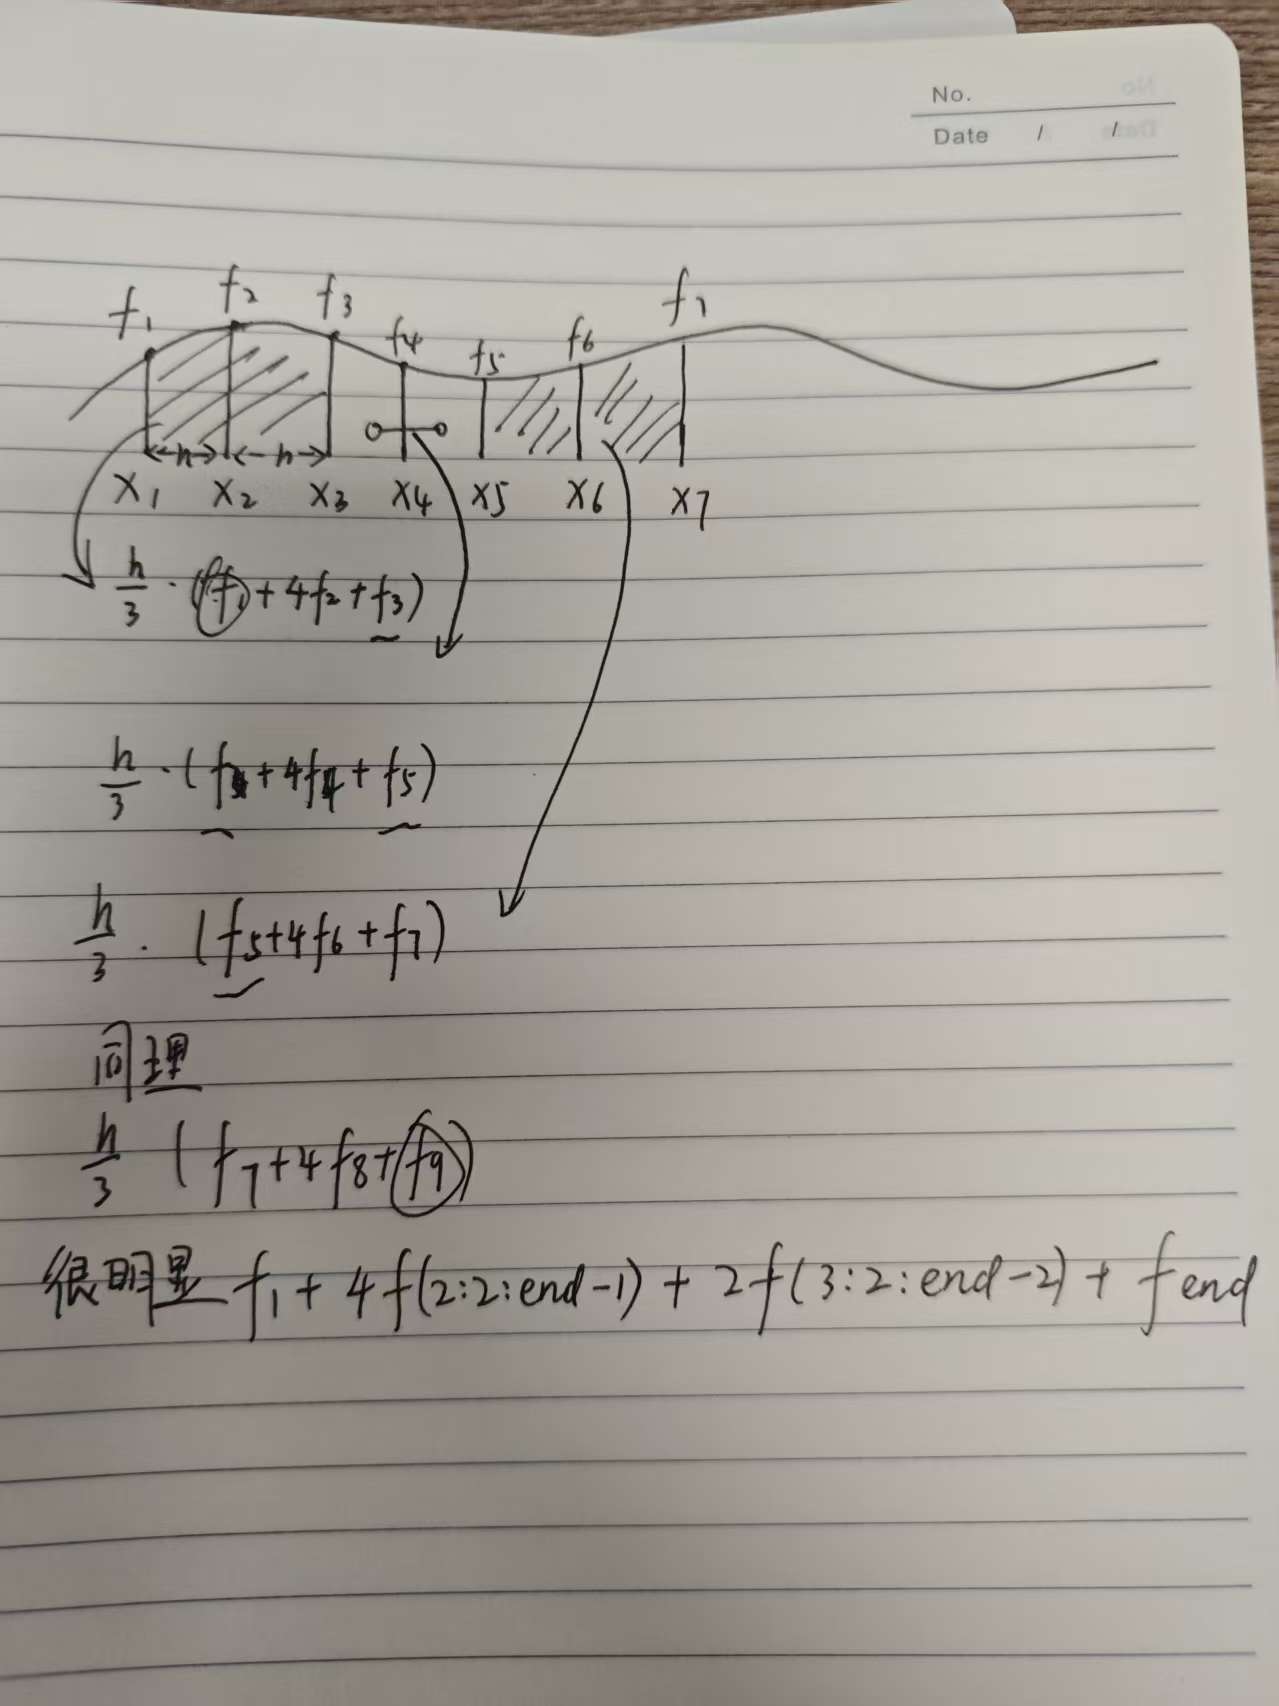 No.
Date / /
f₁ f₂ f₃ f₄ f₅ f₆ f₇
h h
x₁ x₂ x₃ x₄ x₅ x₆ x₇
h/3 · (f₁ + 4f₂ + f₃)
h/3 · (f₃ + 4f₄ + f₅)
h/3 · (f₅ + 4f₆ + f₇)
同理
h/3 (f₇ + 4f₈ + f₉)
很明显 f₁ + 4f(2:2:end-1) + 2f(3:2:end-2) + f end